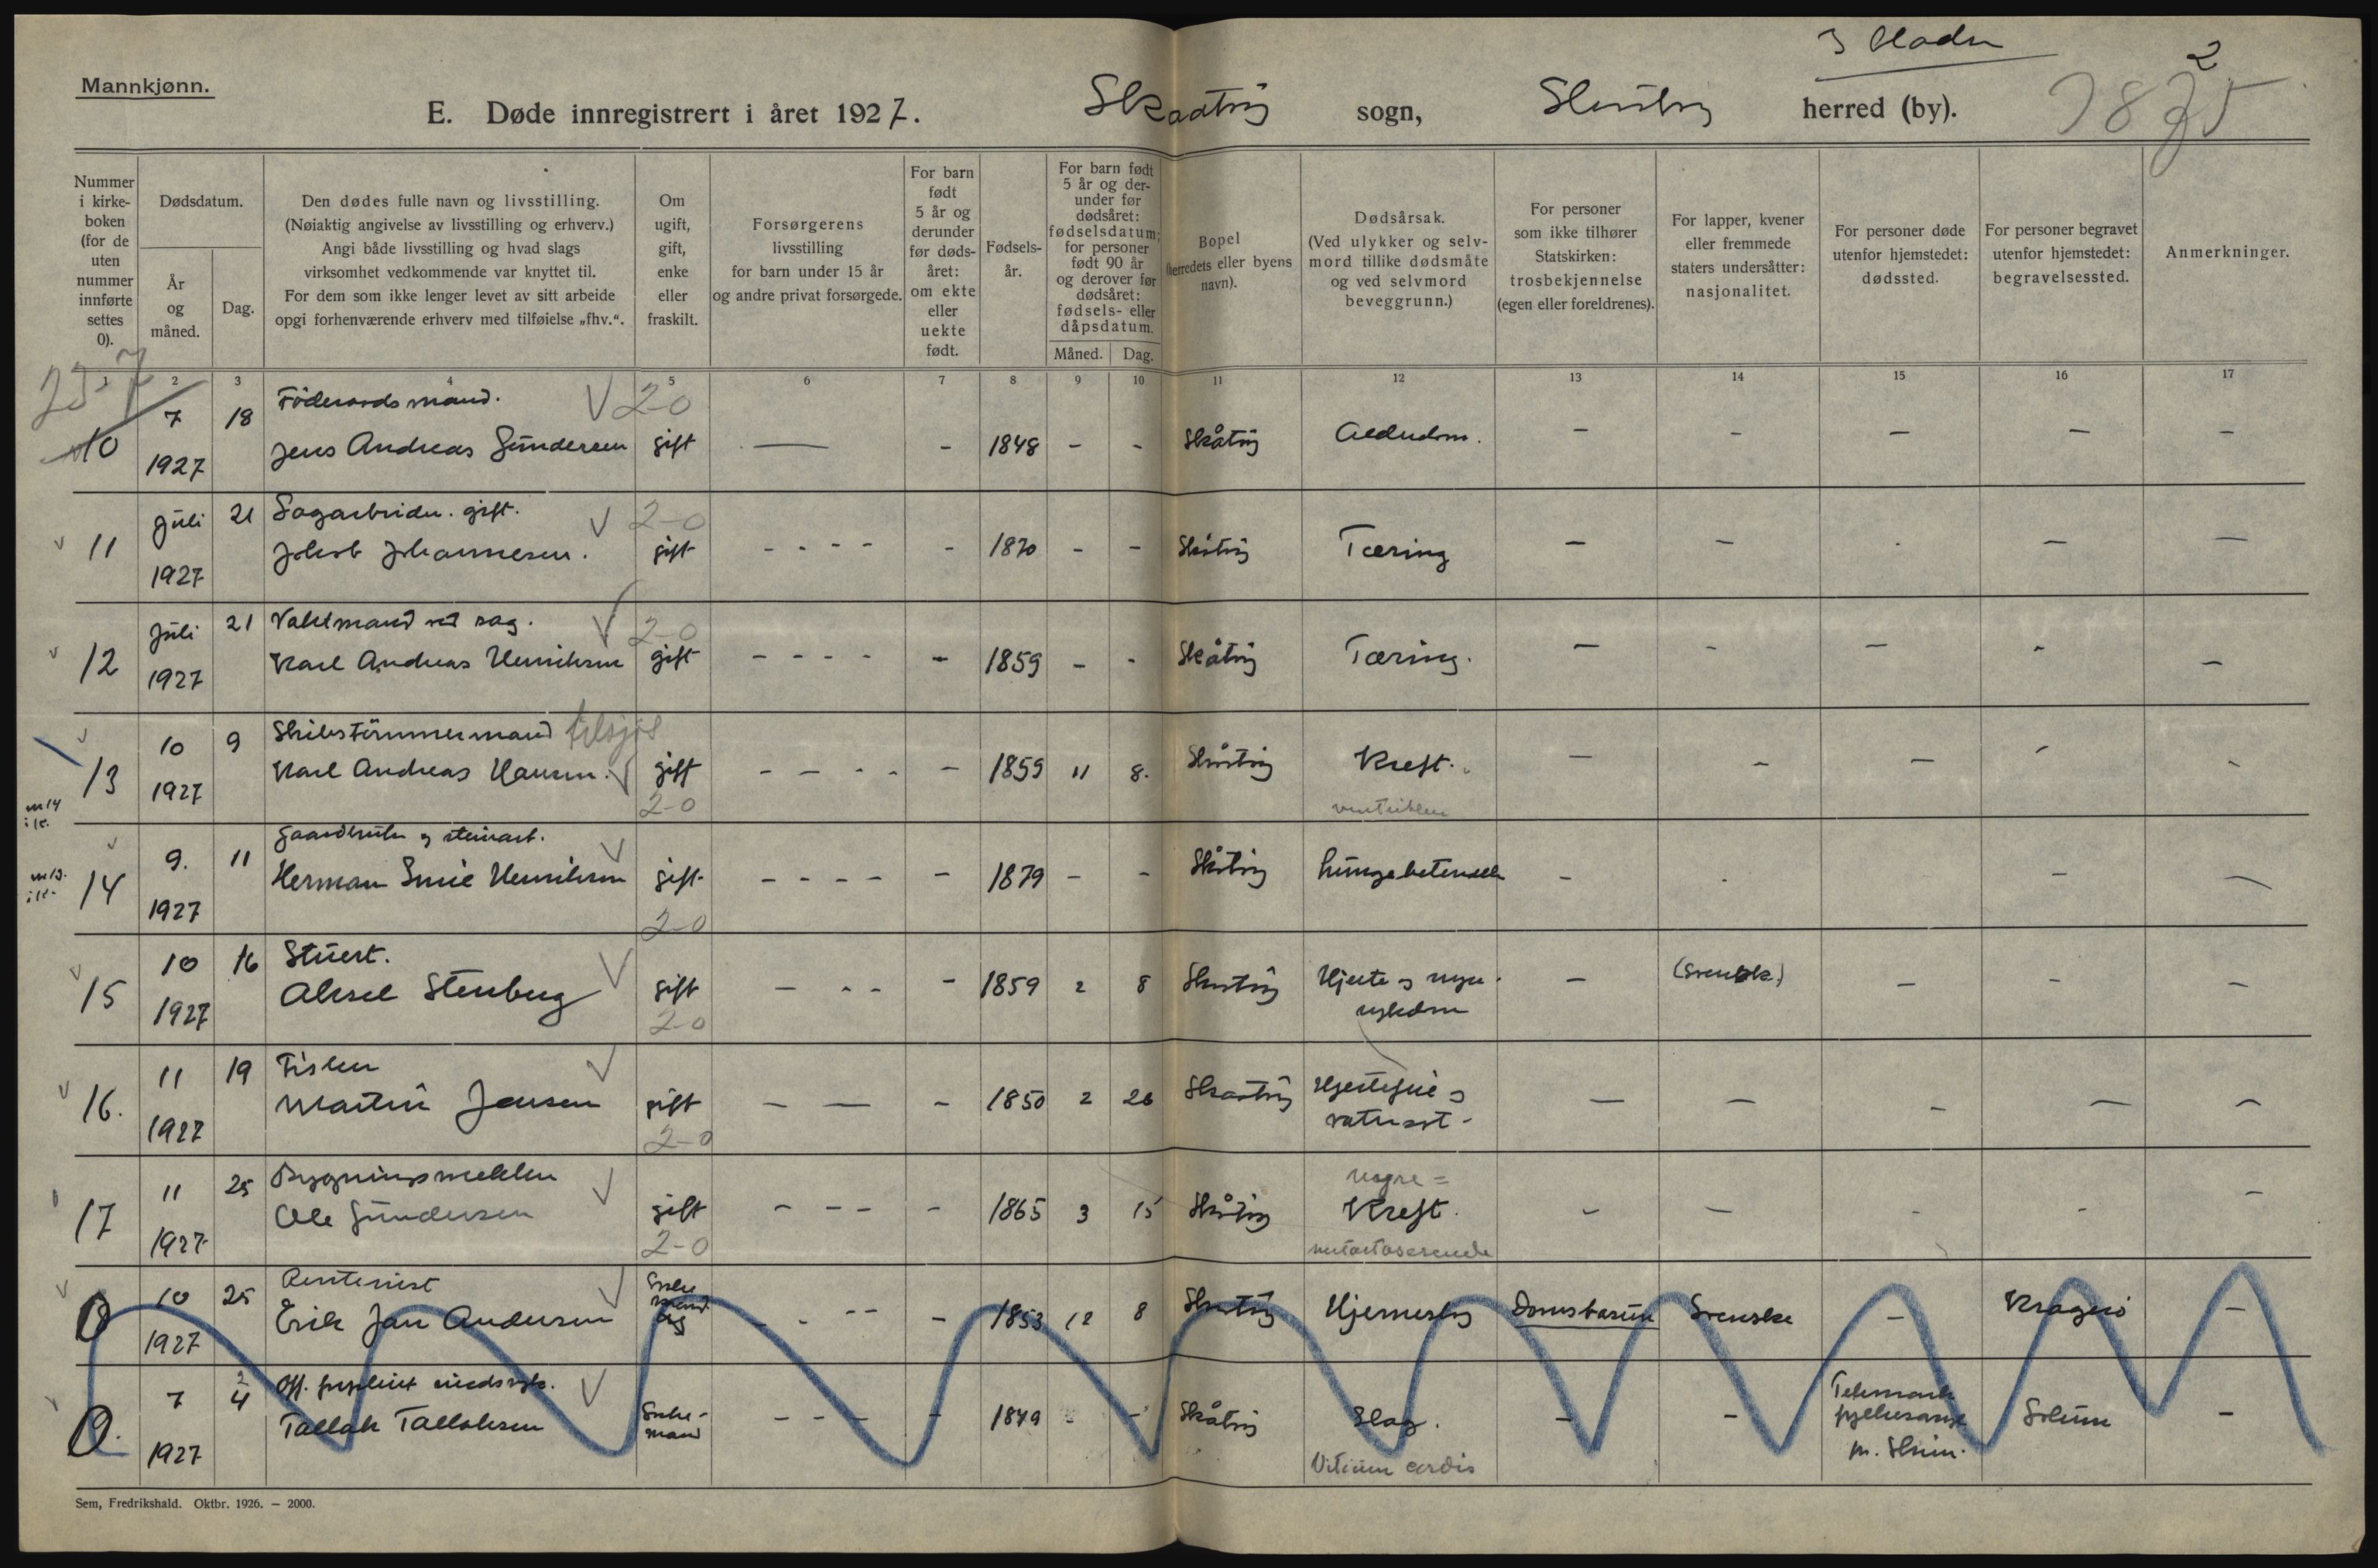 Mannkjønn.
E. Døde innregistrert i året 1927.
Skaatøy sogn,
herred (by).
2
Nummer
i kirke-
boken
(for de
uten
nummer
innførte
settes
0).
Dødsdatum.
År
og
måned.
Dag.
Den dødes fulle navn og livsstilling.
(Nøiaktig angivelse av livsstilling og erhverv.)
Angi både livsstilling og hvad slags
virksomhet vedkommende var knyttet til.
For dem som ikke lenger levet av sitt arbeide
opgi forhenværende erhverv med tilføielse „fhv.“.
Om
ugift,
gift,
enke
eller
fraskilt.
Forsørgerens
livsstilling
for barn under 15 år
og andre privat forsørgede.
For barn
født
5 år og
derunder
før døds-
året:
om ekte
eller
uekte
født.
Fødsels-
år.
For barn født
5 år og der-
under før
dødsåret:
fødselsdatum;
for personer
født 90 år
og derover før
dødsåret:
fødsels- eller
dåpsdatum.
Måned. Dag.
Bopel
(herredets eller byens
navn).
Dødsårsak.
(Ved ulykker og selv-
mord tillike dødsmåte
og ved selvmord
beveggrunn.)
For personer
som ikke tilhører
Statskirken:
trosbekjennelse
(egen eller foreldrenes).
For lapper, kvener
eller fremmede
staters undersåtter:
nasjonalitet.
For personer døde
utenfor hjemstedet:
dødssted.
For personer begravet
utenfor hjemstedet:
begravelsessted.
Anmerkninger.
1 2 3 4 5 6 7 8 9 10 11 12 13 14 15 16 17
Føderaadsmand. 2-0
10 7 1927 18 Jens Andreas Gundersen gift — - 1848 - - Skåtøy Alderdom. - - - - -
Sagarbeider. gift. 2-0
11 Juli 1927 21 Jakob Johannesen. gift - - - - - 1870 - - Skåtøy Tæring - - - -
Vaktmand ved sag. 2-0
12 Juli 1927 21 Karl Andreas Henriksen gift - - - - - 1859 - - Skåtøy Tæring. - - - - -
Skibstømmermand tilsjøs
13 10 1927 9 Karl Andreas Hansen. gift - - - - - 1859 11 8. Skåtøy Kreft. - - - - -
2-0 ventriklen
Gaardbruker og
14 9. 1927 11 Herman Henriksen gift - - - - - 1879 - - Skåtøy Lungebetendelse - - - -
2-0
Stuert.
15 10 1927 16 Aksel Stenberg gift - - - - 1859 2 8 Skaatøy Hjerte og nyre-
sykdom - (svensk.) - - -
2-0
Fisker
16. 11 1927 19 Martin Jensen gift - - - 1850 2 26 Skaatøy Hjertefeil og
vatersot - - - - - -
2-0
Bygningssnekker
17 11 1927 25 Ole Gundersen gift - - - - 1865 3 15 Skåtøy Kreft. - - - - -
2-0 metastaserende
Rentenist
0 10 1927 25 Erik Jan Andersen 1853 12 8 Skaatøy Svenske - Kragerø -
0. 7 1927 4 Tallak Tallaksen Enke-
mand - - - - - 1849 - - Skåtøy Slag. - - Telemark
fylkes
pr. Skien. Solum -
Vitium cordis
Sem, Fredrikshald. Oktbr. 1926. — 2000.